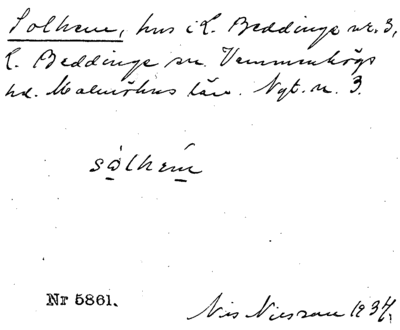 Solhem, hus i L. Beddinge nr. 3,
L. Beddinge sn. Vemmenhögs
hd. Malmöhus län. Nyt. n. 3.
sọ̀lhẹ́m
Nr 5861.
Nils Nilsson 1934.